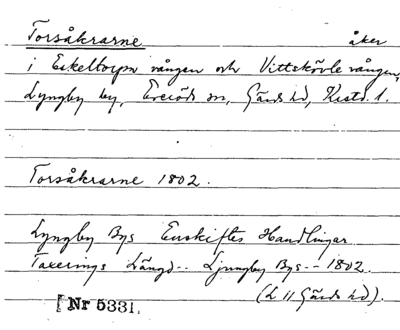 Torsåkrarne åker
i Eskeltorps vången och Vittskövle vången,
Lyngby by, Everöds sn, Gärds hd, Krstd. l.
Torsåkrarne 1802.
Lyngby Bys Enskiftes Handlingar
Taxerings Längd -- Ljungby Bys -- 1802.
(L 11 Gärds hd).
[Nr 5331.